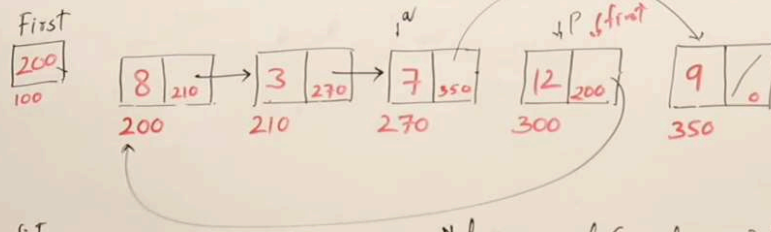 First
200
100
8 210
200
3 270
210
a
7 350
270
P first
12 200
300
9
350